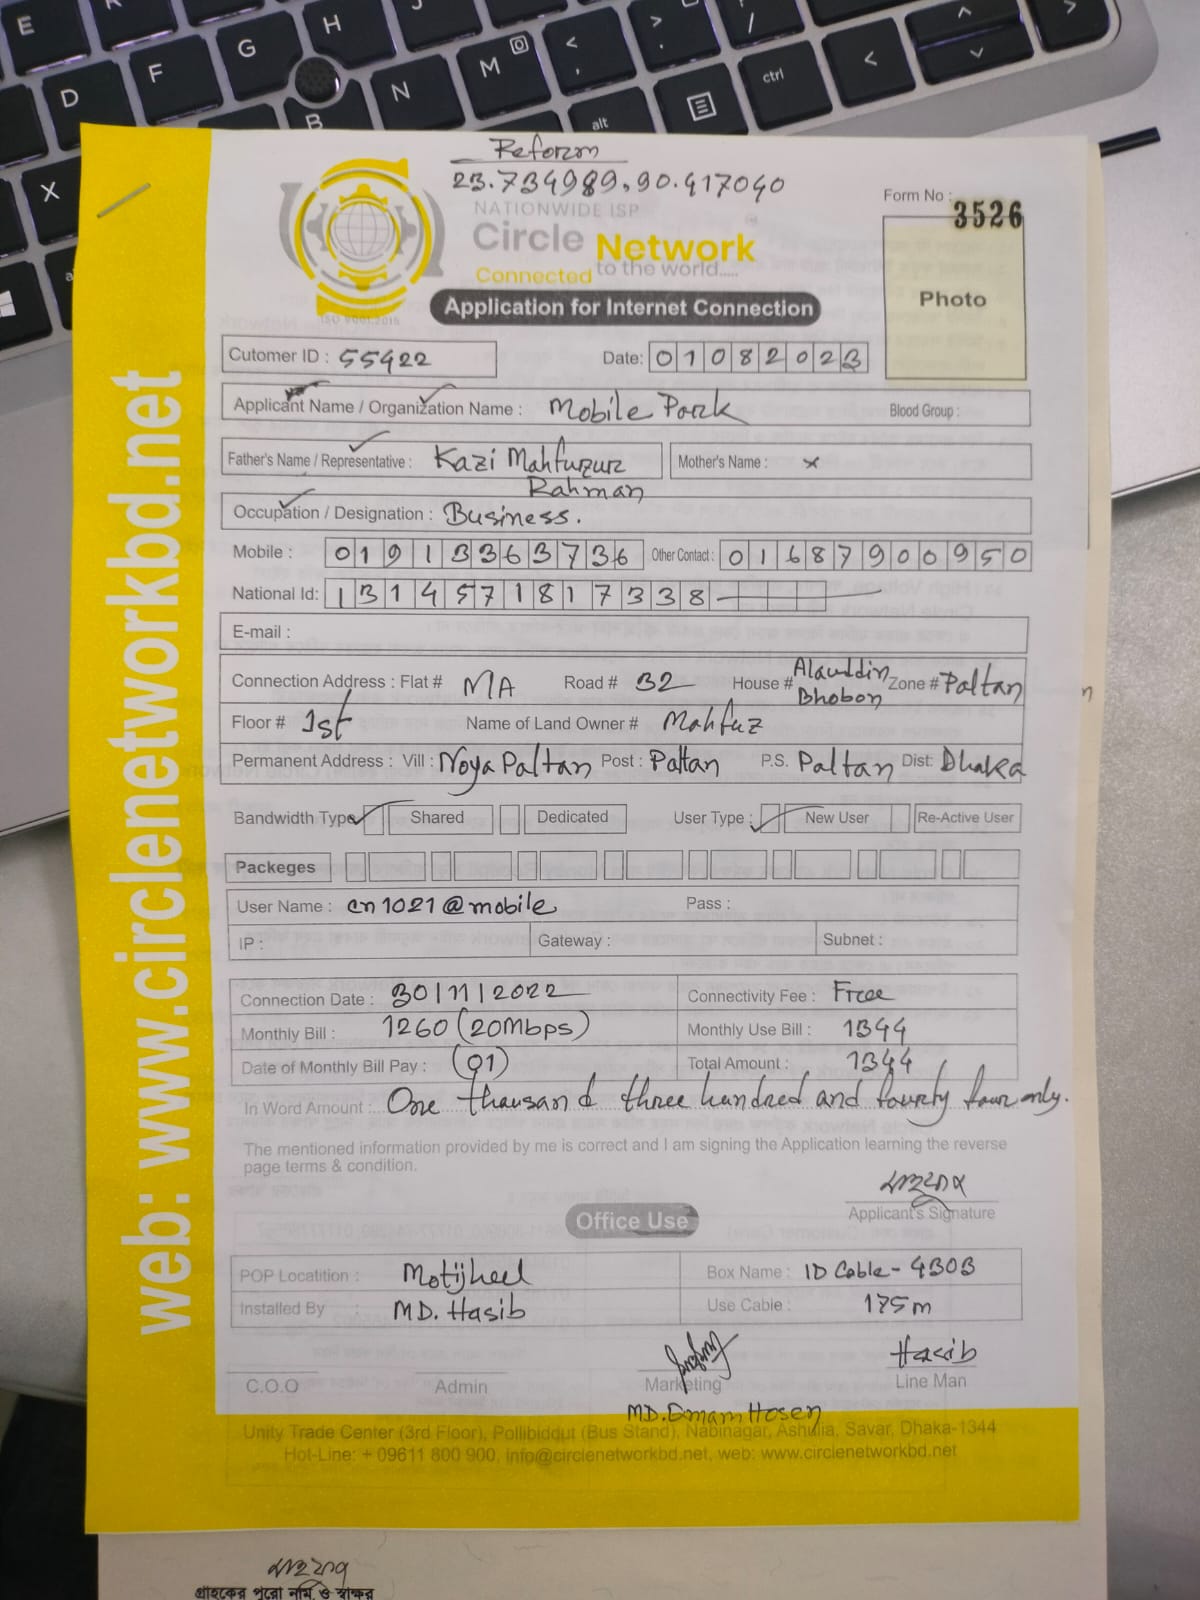 Reform
23.734989, 90.417040
NATIONWIDE ISP
Form No : 3526
Circle Network
Connected to the world.....
ISO 9001:2015
Application for Internet Connection
Photo
Cutomer ID : 55422 Date: 01082023
Applicant Name / Organization Name : Mobile Park Blood Group :
Father's Name / Representative : Kazi Mahfuzur Rahman Mother's Name : x
Occupation / Designation : Business.
Mobile : 01913363736 Other Contact : 01687900950
National Id: 1314571817338
E-mail :
Connection Address : Flat # MA Road # 32 House # Alauddin Bhobon Zone # Paltan
Floor # 1st Name of Land Owner # Mahfuz
Permanent Address : Vill : Noya Paltan Post : Paltan P.S. Paltan Dist: Dhaka
Bandwidth Type Shared Dedicated User Type : New User Re-Active User
Packeges
User Name : cn1021@mobile Pass :
IP : Gateway : Subnet :
Connection Date : 30/11/2022 Connectivity Fee : Free
Monthly Bill : 1260 (20Mbps) Monthly Use Bill : 1344
Date of Monthly Bill Pay : (01) Total Amount : 1344
In Word Amount : One thausand three hundred and fourty four only.
The mentioned information provided by me is correct and I am signing the Application learning the reverse
page terms & condition.
Applicant's Signature
Office Use
POP Locatition : Motijheel Box Name : ID Cable - 4303
Installed By : MD. Hasib Use Cable : 175m
Hasib
C.O.O Admin Marketing Line Man
MD. Emam Hosen
Unity Trade Center (3rd Floor), Pollibiddut (Bus Stand), Nabinagar, Ashulia, Savar, Dhaka-1344
Hot-Line: + 09611 800 900, info@circlenetworkbd.net, web: www.circlenetworkbd.net
web: www.circlenetworkbd.net
গ্রাহকের পুরো নাম ও স্বাক্ষর
E
H
G
F
D
M
N
B
X
ctrl
alt